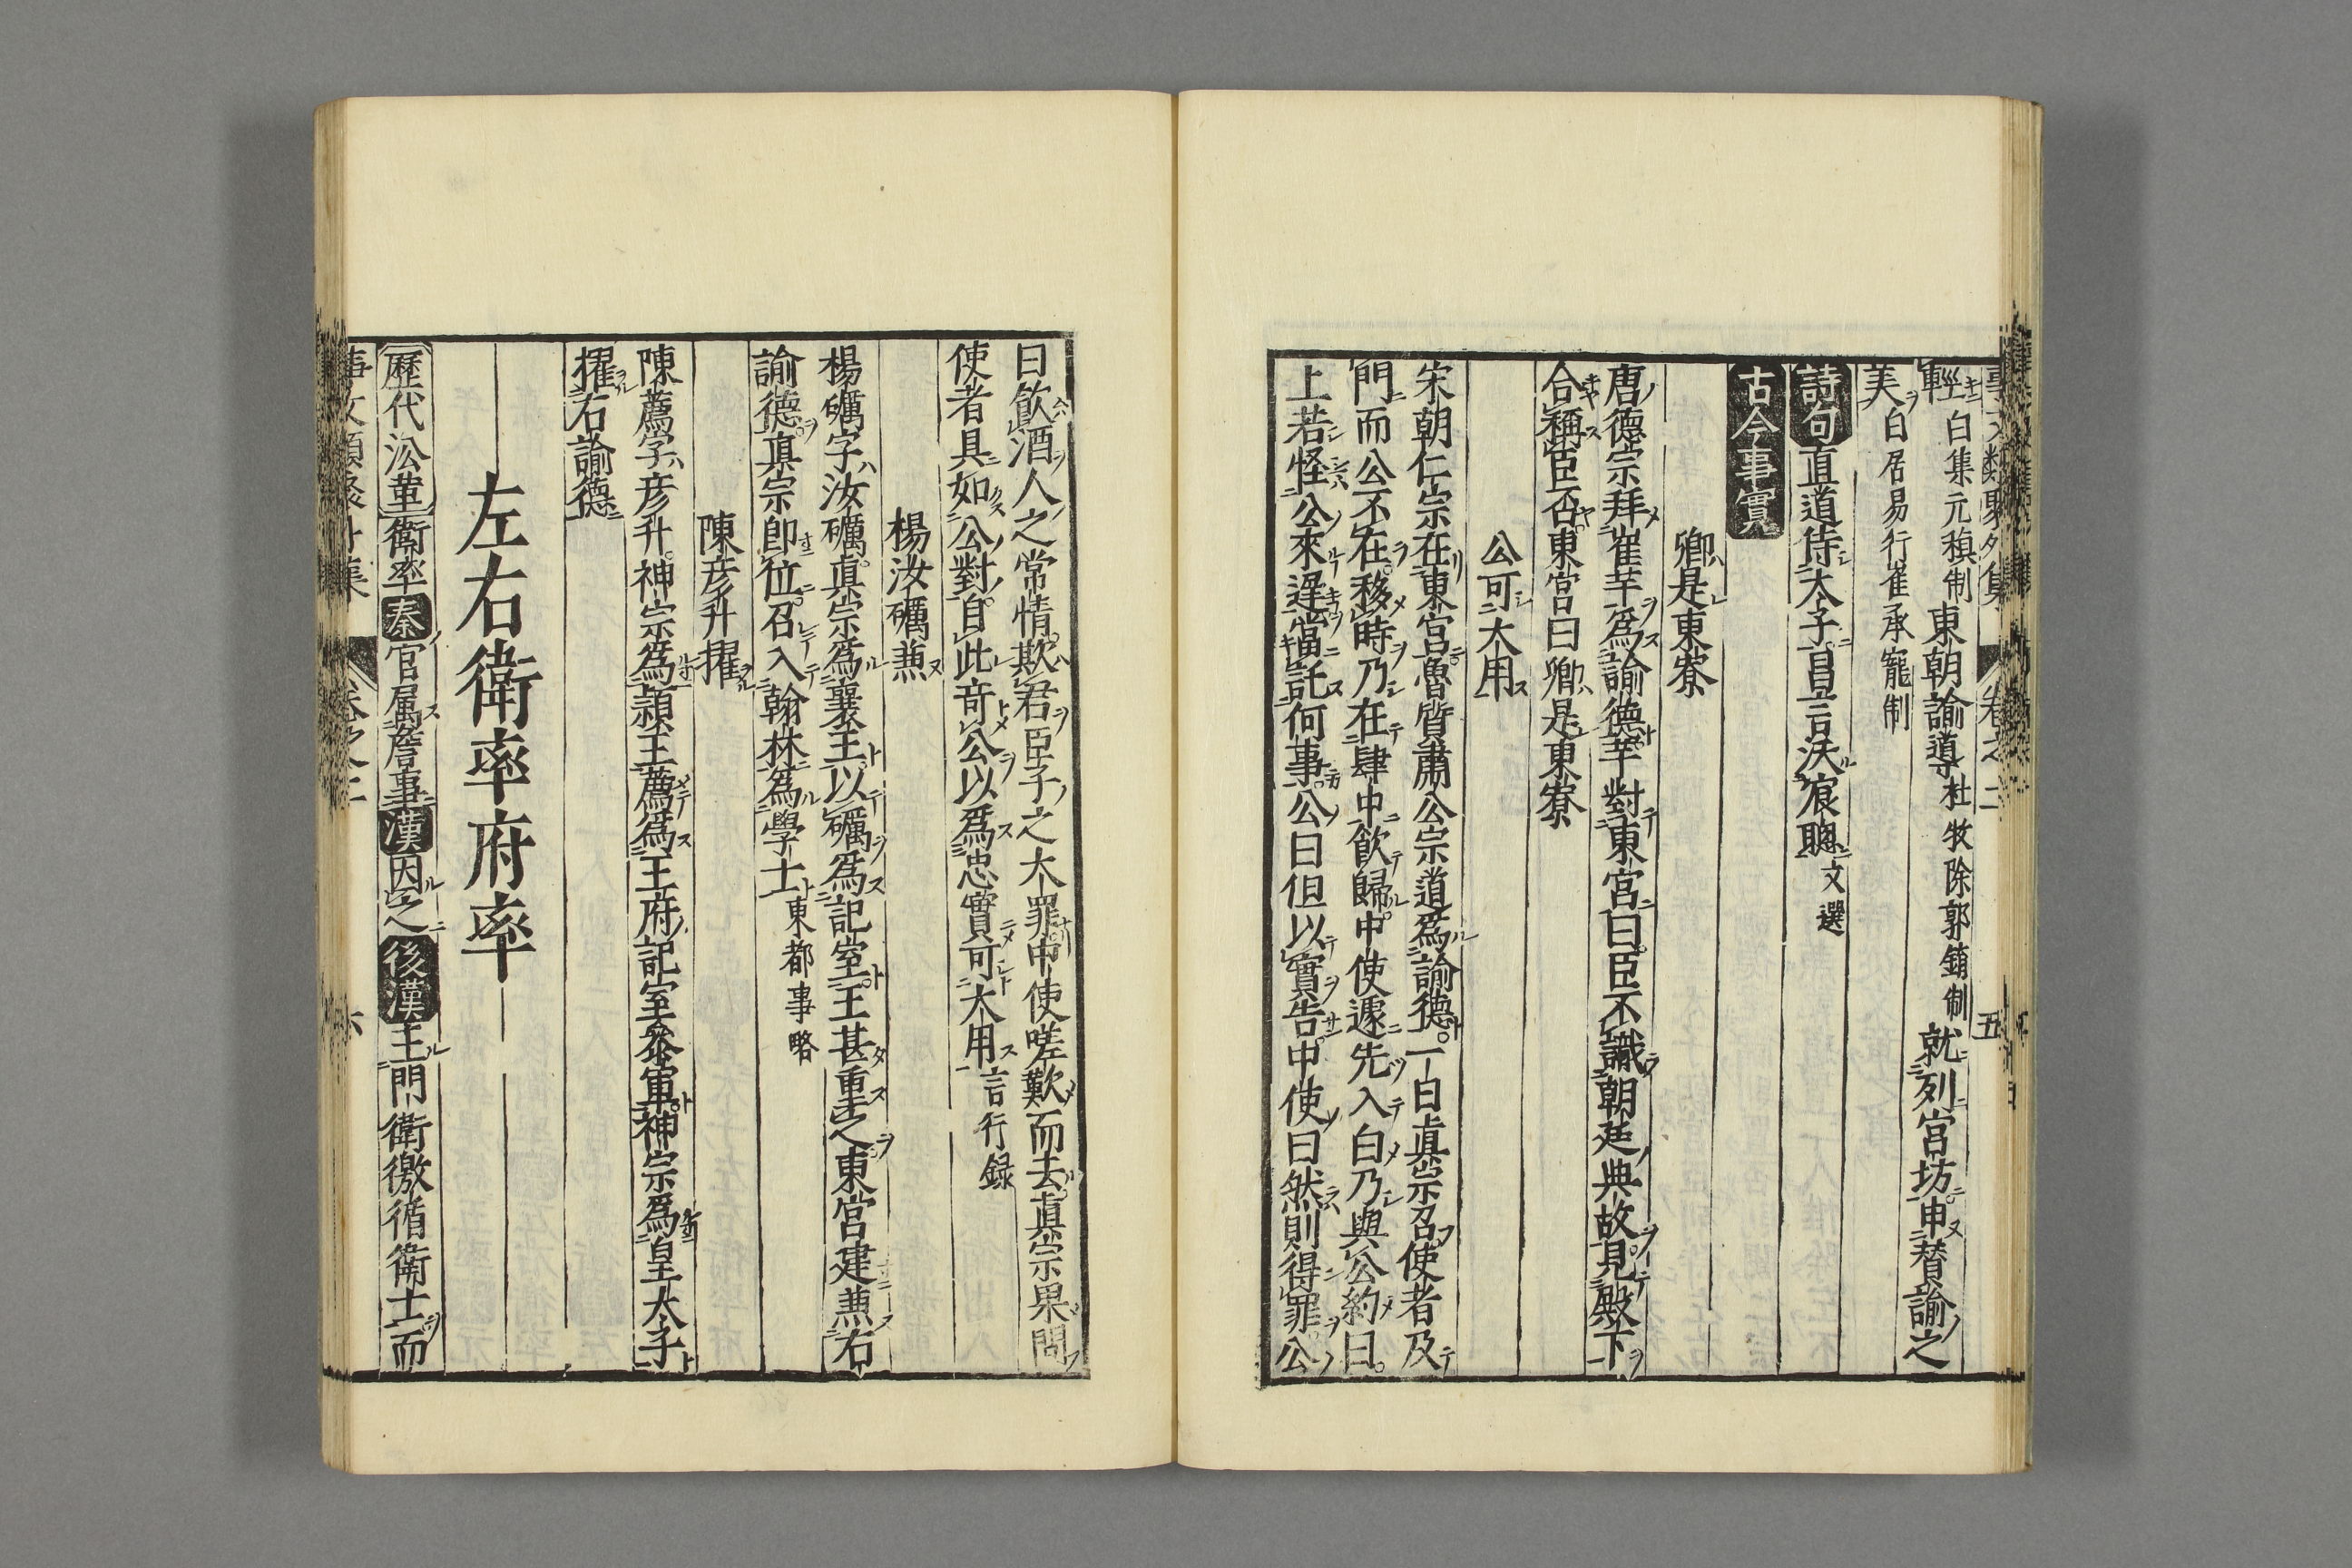 輕白集元稹制東朝諭導杜牧除郭鏑制就列宮坊申替諭之
美白居易行崔承寵制
詩句直道侍太子昌言沃宸聰文選
古今事實
卿是東寮
唐德宗拜崔芊爲諭德芊對東宮曰臣不識朝廷典故見殿下
合稱臣否東宮曰卿是東寮
公可大用
宋朝仁宗在東宮魯質肅公宗道爲諭德一日眞宗召使者及
門而公不在移時乃在肆中飮歸中使遽先入白乃與公約曰
上若怪公來遲當託何事公曰但以實告中使曰然則得罪公
曰飮酒人之常情欺君臣子之大罪中使嗟歎而去眞宗果問
使者具如公對自此奇公以爲忠實可大用言行録
楊汝礪兼
楊礪字汝礪眞宗爲襄王以礪爲記室王甚重之東宮建兼右
諭德眞宗卽位召入翰林爲學士東都事略
陳彦升擢
陳薦字彦升神宗爲潁王薦爲王府記室參軍神宗爲皇太子
擢右諭德
左右衛率府率
歷代沿革衛率秦官属詹事漢因之後漢主門衛徼循衛士而